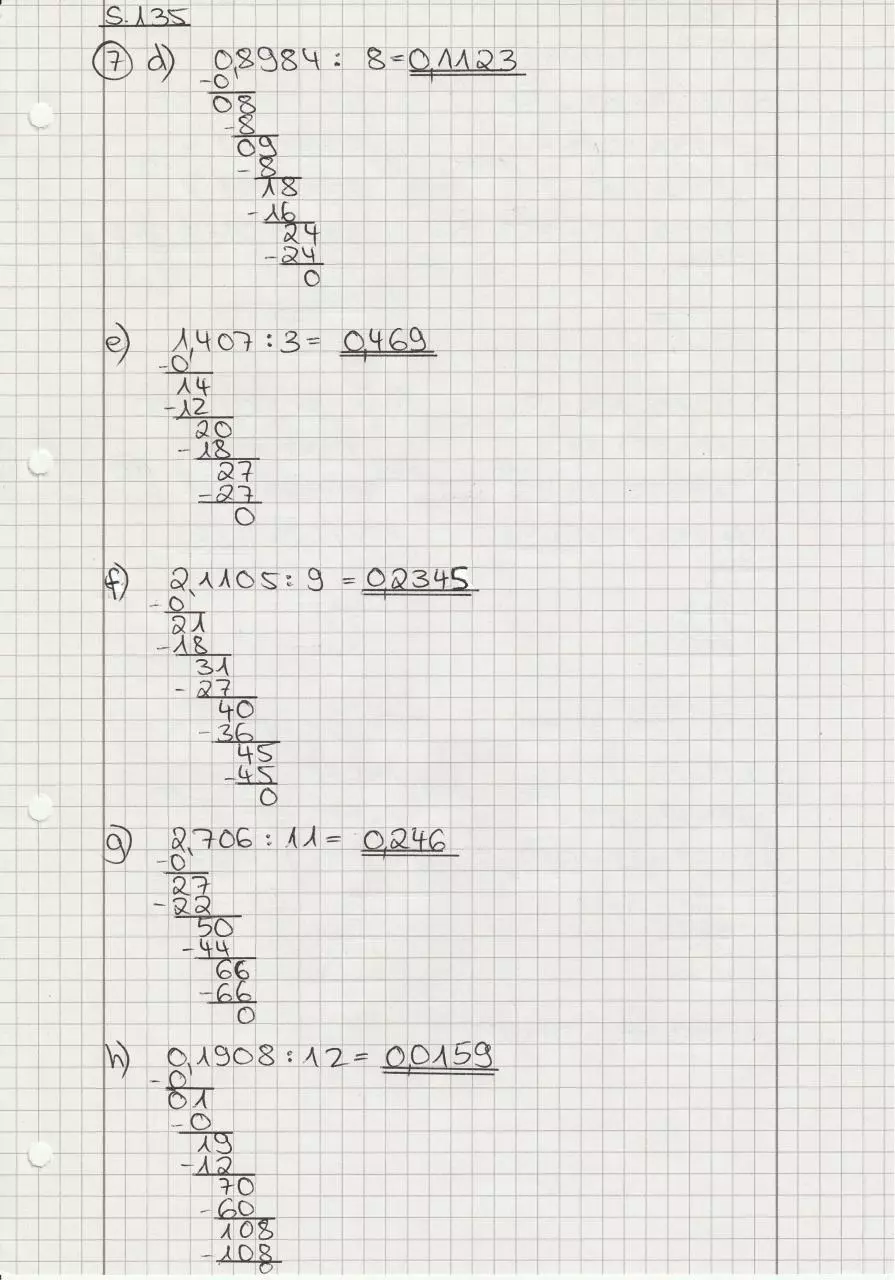 S.135
7 d) 0,8984 : 8 = 0,1123
-0
08
-8
09
-8
18
-16
24
-24
0
e) 1,407 : 3 = 0,469
-0
14
-12
20
-18
27
-27
0
f) 2,1105 : 9 = 0,2345
-0
21
-18
31
-27
40
-36
45
-45
0
g) 2,706 : 11 = 0,246
-0
27
-22
50
-44
66
-66
0
h) 0,1908 : 12 = 0,0159
-0
01
-0
19
-12
70
-60
108
-108
0